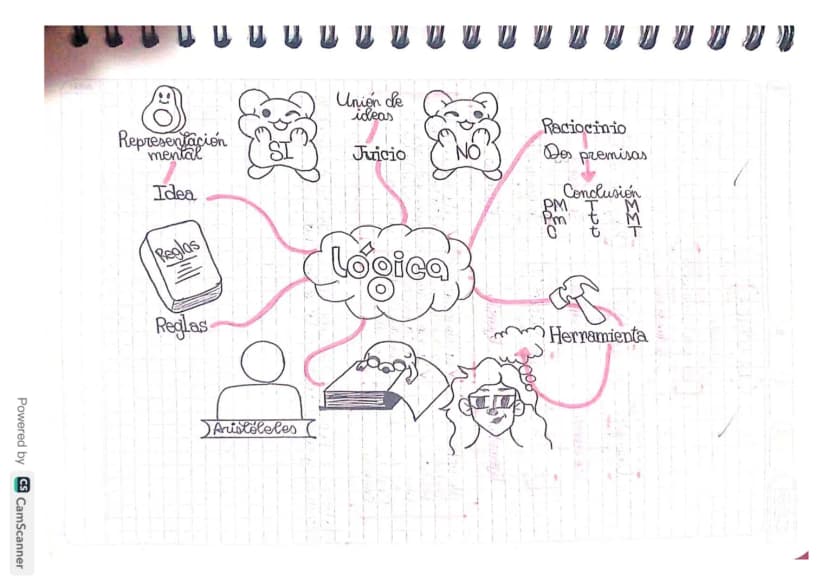 Representación
mental
Idea
SI
Unión de
ideas
Juicio
NO
Raciocinio
Dos premisas
Conclusión
PM T M
Pm t M
C t T
Reglas
Reglas
lógica
Herramienta
Aristóteles
Powered by CS CamScanner